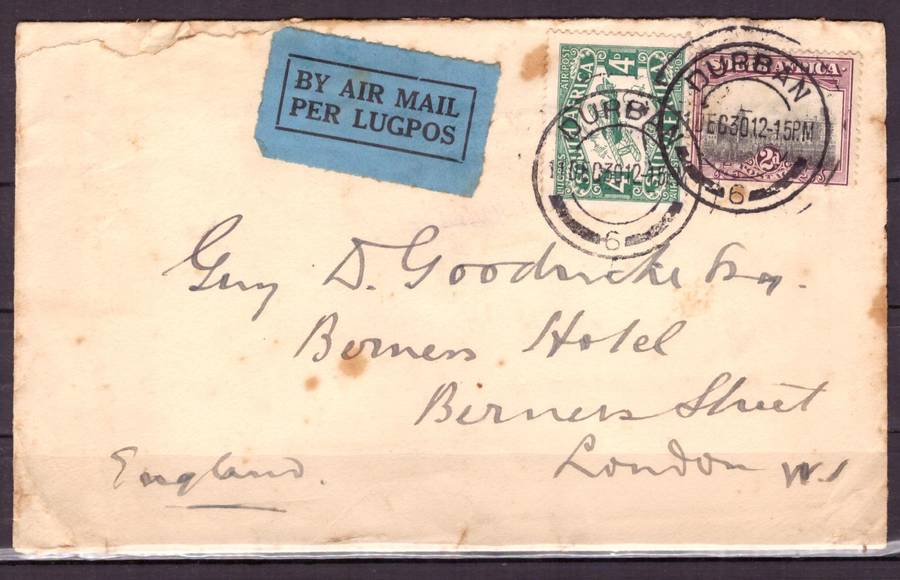 BY AIR MAIL
PER LUGPOS
AIR POST
4D
AFRICA
DURBAN
11 DEC 30 12-15PM
6
AFRICA
2D
DURBAN
DEC 30 12-15PM
6
Guy D. Goodricke Esq.
Berners Hotel
Berners Street
London W.1
England.